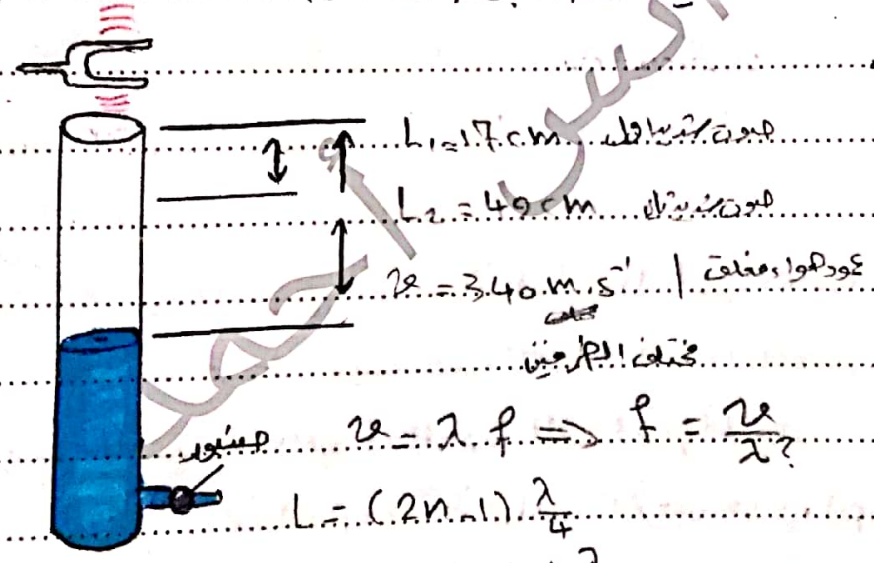 L₁ = 17 cm صوت شديد أول
L₂ = 49 cm صوت شديد ثان
v = 340 m.s⁻¹ | عمود هواء مغلق
مختلف الطرفين
v = λ f ⇒ f = v/λ ?
صنبور
L = (2n-1) λ/4
λ